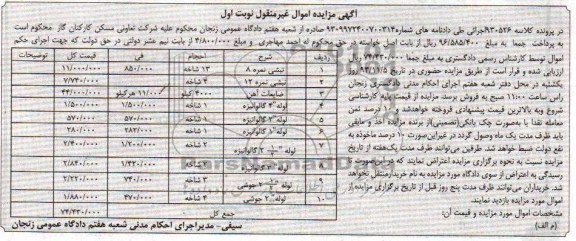 آگهی مزایده اموال غیرمنقول نوبت اول
در پرونده کلاسه ۹۳۰۵۲۶ اجرائی طی دادنامه های شماره ۹۳۰۹۹۷۲۴۰۰۷۰۰۳۱۴ صادره از شعبه هفتم دادگاه عمومی زنجان محکوم علیه شرکت تعاونی مسکن کارکنان گاز محکوم است
به پرداخت جمعا به مبلغ ۹۶/۵۸۵/۴۰۰ ریال از بابت اصل خواسته در حق محکوم له احمد مهاجری و مبلغ ۴/۸۰۰/۰۰۰ از بابت نیم عشر دولتی در حق دولت که جهت اجرای حکم
اموال توسط کارشناس رسمی دادگستری به مبلغ جمعا ۷۴/۴۳۰/۰۰۰ ریال
ارزیابی شده و قرار است از طریق مزایده حضوری در تاریخ ۹۳/۱۱/۵ روز
یکشنبه در محل دفتر شعبه هفتم اجرای احکام مدنی دادگستری زنجان
راس ساعت ۱۱:۰۰ صبح به فروش برسد. مزایده از قیمت پایه کارشناسی
شروع و به بالاترین قیمت پیشنهادی فروخته خواهد شد و ۱۰ درصد ثمن
معامله نقدا یا بصورت چک بانکی (تضمینی) از برنده مزایده اخذ و مابقی
باید ظرف مدت یک ماه وصول گردد در غیر این صورت ۱۰ درصد ماخوذه به
نفع دولت ضبط خواهد شد. طرفین می‌توانند ظرف مدت یک هفته از تاریخ
مزایده نسبت به نحوه برگزاری مزایده اعتراض نمایند که در این صورت تا
رسیدگی به اعتراض از سوی دادگاه مورد مزایده به نام خریدار منتقل نخواهد
شد. خریداران می‌توانند ظرف مدت پنج روز قبل از تاریخ برگزاری مزایده از
اموال مورد مزایده بازدید نمایند.
مشخصات اموال مورد مزایده و قیمت آن:
(م الف)
ردیف شرح احجام فی قیمت کل توضیحات
۱ نبشی نمره ۸ ۱۳ شاخه ۸۵۰/۰۰۰ ۱۱/۰۰۰/۰۰۰
۲ نبشی نمره ۱۲ ۴ شاخه ۷/۷۴۰/۰۰۰
۳ ضایعات آهن ۴۰۰۰ کیلو ۱۱/۰۰۰ هر کیلو ۴۴/۰۰۰/۰۰۰
۴ لوله ۴ گالوانیزه ۱ شاخه ۱/۵۰۰/۰۰۰ ۱/۵۰۰/۰۰۰
۵ لوله ۲ گالوانیزه ۱ شاخه ۵۷۰/۰۰۰ ۵۷۰/۰۰۰
۶ لوله گالوانیزه ۱ شاخه ۲۸۰/۰۰۰ ۲۸۰/۰۰۰
۷ لوله ۲ گالوانیزه ۲ شاخه ۱/۲۰۰/۰۰۰ ۲/۴۰۰/۰۰۰
۸ لوله گالوانیزه ۲ شاخه ۱/۴۲۰/۰۰۰ ۲/۸۴۰/۰۰۰
۹ لوله ۲ جوشی ۳ شاخه ۷۴۰/۰۰۰ ۲/۲۲۰/۰۰۰
۱۰ لوله ۲ جوشی ۴ شاخه ۴۷۰/۰۰۰ ۱/۸۸۰/۰۰۰
جمع کل ۷۴/۴۳۰/۰۰۰
سیفی - مدیر اجرای احکام مدنی شعبه هفتم دادگاه عمومی زنجان